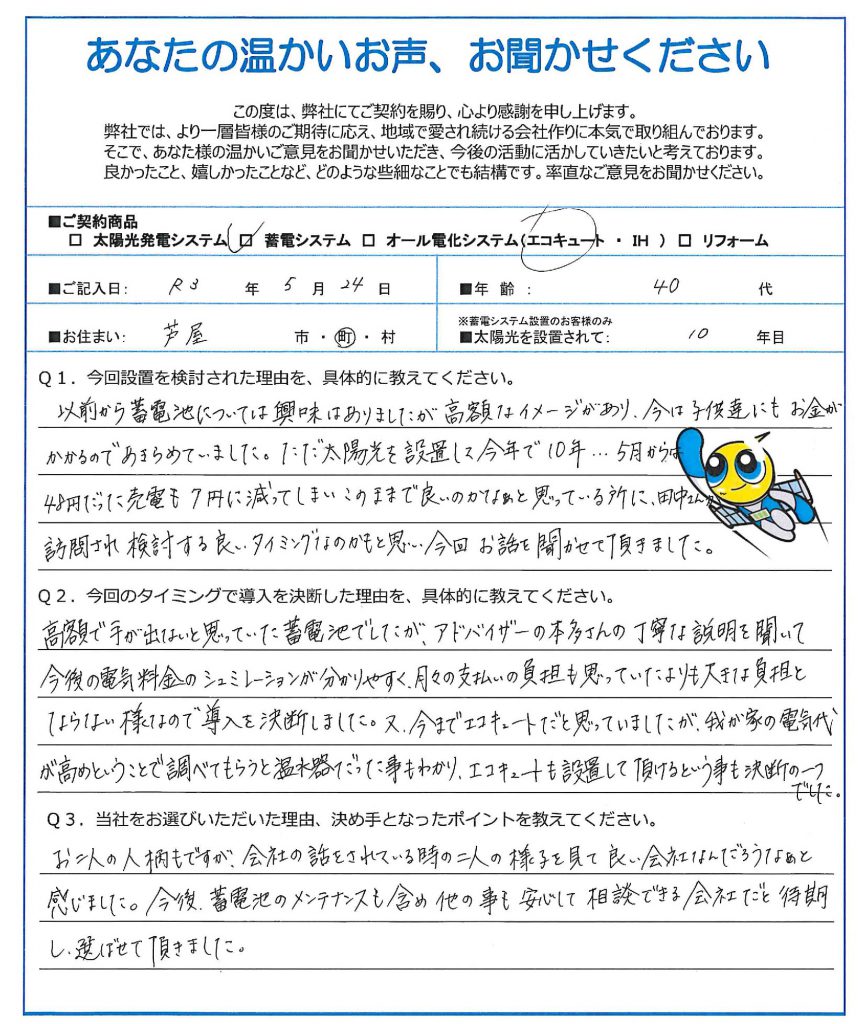 あなたの温かいお声、お聞かせください
この度は、弊社にてご契約を賜り、心より感謝を申し上げます。
弊社では、より一層皆様のご期待に応え、地域で愛され続ける会社作りに本気で取り組んでおります。
そこで、あなた様の温かいご意見をお聞かせいただき、今後の活動に活かしていきたいと考えております。
良かったこと、嬉しかったことなど、どのような些細なことでも結構です。率直なご意見をお聞かせください。
■ご契約商品
□ 太陽光発電システム ☑ 蓄電システム □ オール電化システム(エコキュート ・ IH ) □ リフォーム
■ご記入日: R3 年 5 月 24 日 ■年 齢 : 40 代
■お住まい: 芦屋 市・町・村 ※蓄電システム設置のお客様のみ
■太陽光を設置されて: 10 年目
Q1．今回設置を検討された理由を、具体的に教えてください。
以前から蓄電池については興味はありましたが高額なイメージがあり、今は子供達にもお金が
かかるのであきらめていました。ただ太陽光を設置して今年で10年…5月からは
48円だった売電も7円に減ってしまいこのままで良いのかなぁと思っている所に、田中さんが
訪問され検討する良いタイミングなのかもと思い今回お話を聞かせて頂きました。
Q2．今回のタイミングで導入を決断した理由を、具体的に教えてください。
高額で手が出ないと思っていた蓄電池でしたが、アドバイザーの本多さんの丁寧な説明を聞いて
今後の電気料金のシュミレーションが分かりやすく、月々の支払いの負担も思っていたよりも大きな負担と
ならない様なので導入を決断しました。又、今までエコキュートだと思っていましたが、我が家の電気代
が高めということで調べてもらうと温水器だった事もわかり、エコキュートも設置して頂けるという事も決断の一つ
でした。
Q3．当社をお選びいただいた理由、決め手となったポイントを教えてください。
お二人の人柄もですが、会社の話をされている時の二人の様子を見て良い会社なんだろうなぁと
感じました。今後、蓄電池のメンテナンスも含め他の事も安心して相談できる会社だと待期
し、選ばせて頂きました。